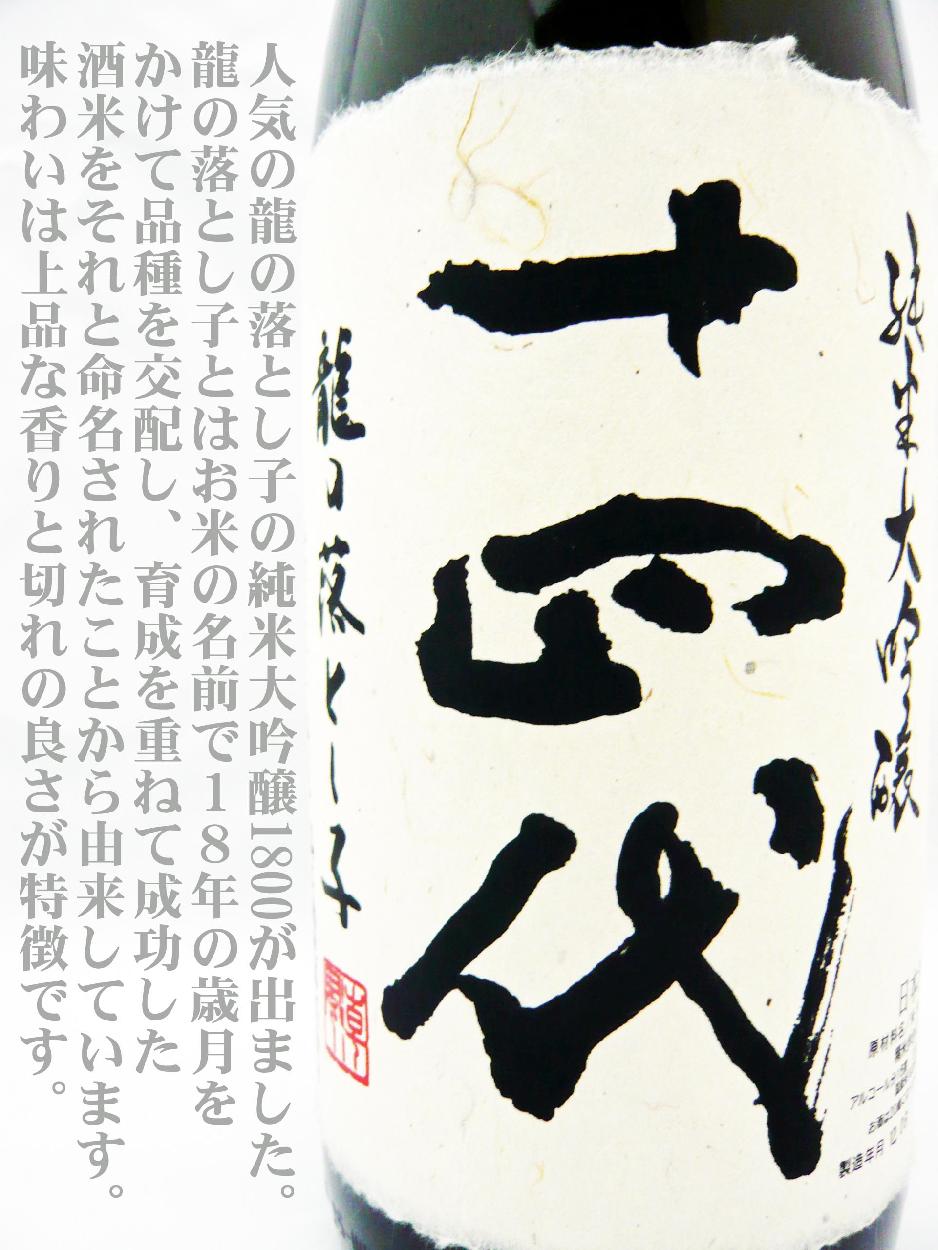 人気の龍の落とし子の純米大吟醸1800が出ました。
龍の落とし子とはお米の名前で１８年の歳月を
かけて品種を交配し、育成を重ねて成功した
酒米をそれと命名されたことから由来しています。
味わいは上品な香りと切れの良さが特徴です。
純米大吟醸
十四代
龍の落とし子
日本
原材料名
アルコール分
お酒は
製造年月